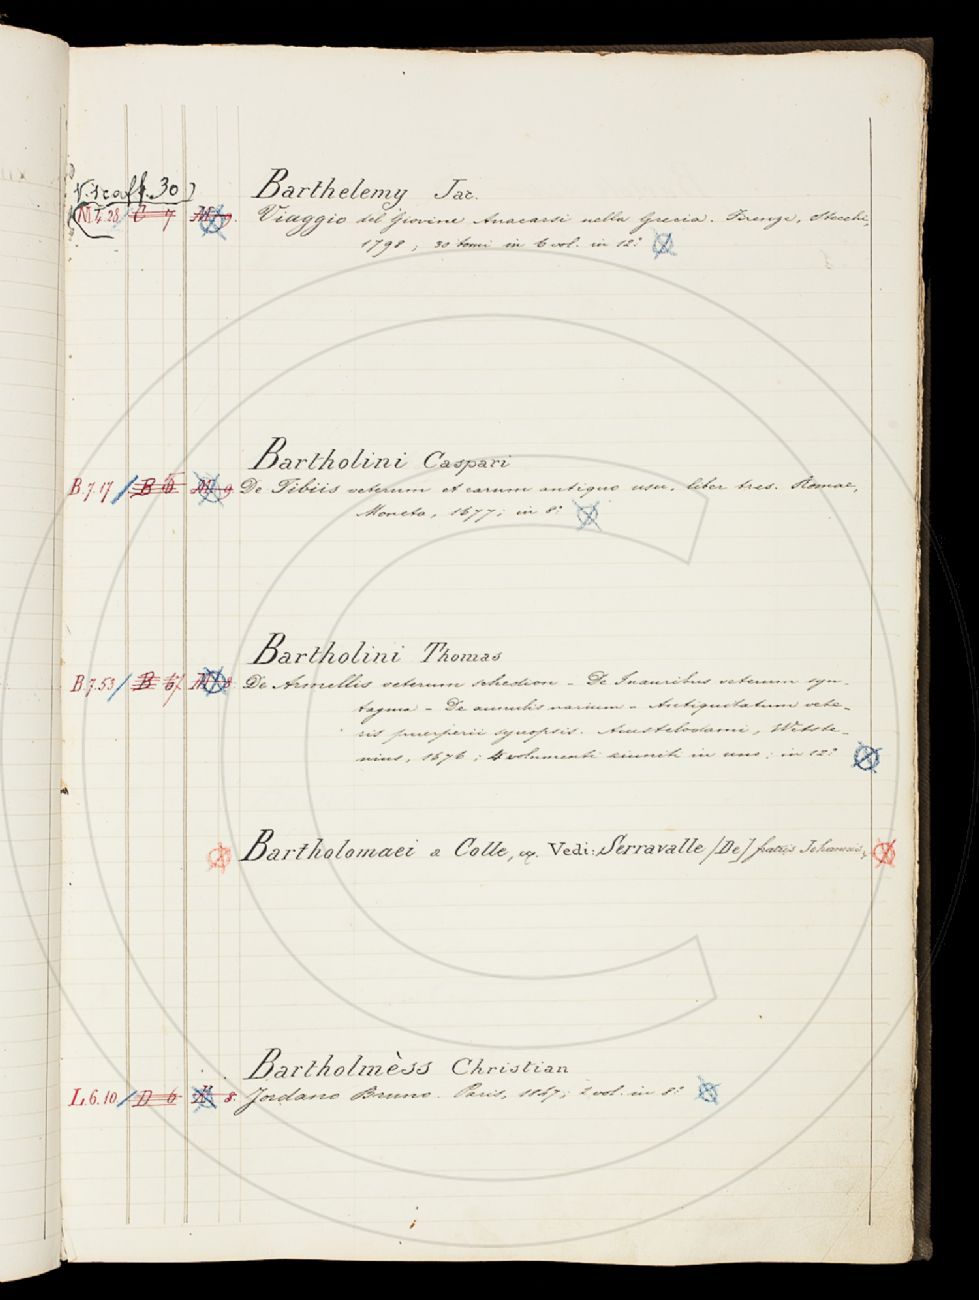 Barthelemy Jac.
N.4.28 C 7 Viaggio del Giovine Anacarsi nella Grecia. Firenze, Stecchi,
1798; 30 tomi in 6 vol. in 12°
Bartholini Caspari
B.7.17 B 6 M 9 De Tibiis veterum et earum antiquo usu. liber tres. Romae,
Moneta, 1677; in 8°
Bartholini Thomas
B.7.53 B 6 M 8 De Armillis veterum schedion - De Inauribus veterum syn-
tagma - De annulis narium - Antiquitatum vete-
ris puerperii synopsis. Amstelodami, Wetste-
nius, 1676; 4 volumenti riuniti in uno; in 12°
Bartholomaei a Colle, Vedi: Serravalle (De) fratris Johannis,
Bartholmèss Christian
L.6.10 D 6 8. Jordano Bruno. Paris, 1847; 2 vol. in 8°